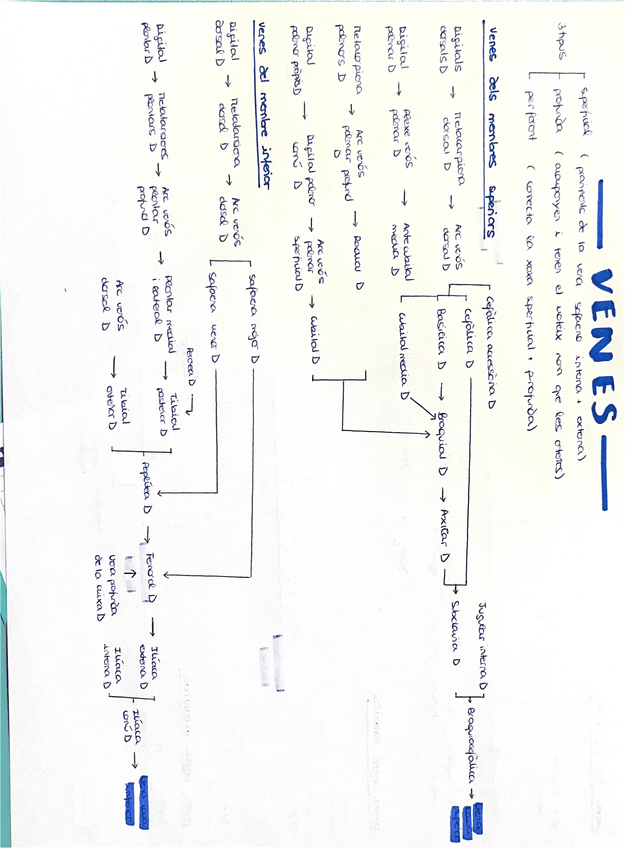 VENES
3 tipus
superficial ( provinents de la vena safena interna + externa)
profunda ( acompanyen i tenen el mateix nom que les artèries)
perforant ( connecta la xarxa superficial + profunda)
Venes dels membres superiors
Cefàlica accessòria D
Digitals dorsals D → Metacarpiana dorsal D → Arc venós dorsal D
Cefàlica D
Basílica D → Braquial D → Axilar D → Subclavia D
Jugular interna D
Braquiocefàlica →
Digital palmar D → Plexe venós palmar D → Antebraquial media D
Cubital media D
Metacarpiana palmars D → Arc venós palmar profund D → Radial D
Digital palmar pròpia D → Digital palmar comú D → Arc venós palmar superficial D → Cubital D
Venes del membre inferior
Digital dorsal D → Metatarsiana dorsal D → Arc venós dorsal D
Safena major D
Safena menor D
Peronea D
Digital plantar D → Metatarsianes plantars D → Arc venós plantar profund D → Plantar medial i lateral D → Tibial posterior D
Arc venós dorsal D → Tibial anterior D
Poplítea D → Femoral D → Ilíaca externa D
vena profunda de la cuixa D
Ilíaca interna D
Ilíaca comú D →